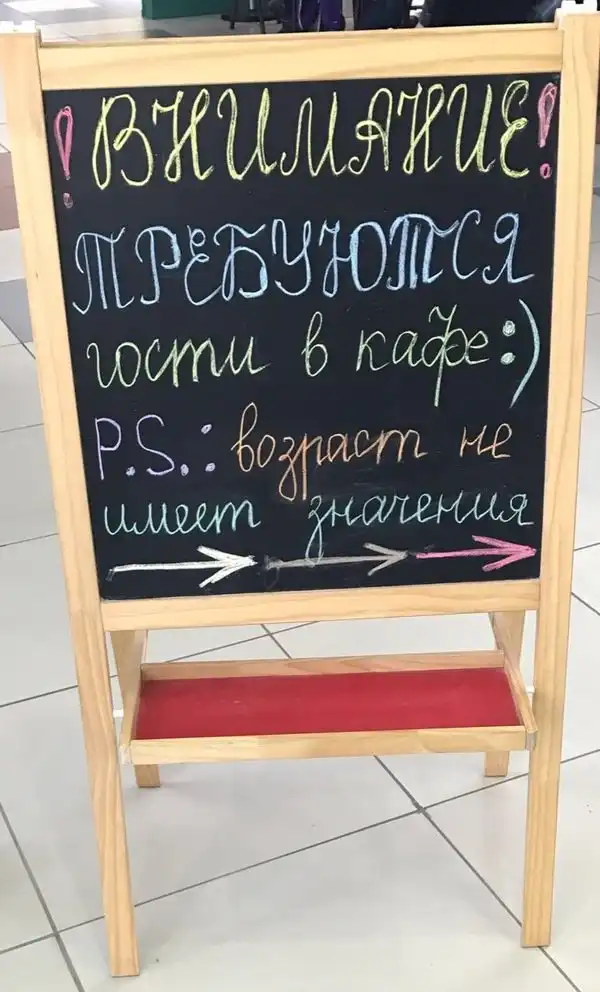 ! ВНИМАНИЕ !
ТРЕБУЮТСЯ
гости в кафе :)
P.S.: возраст не
имеет значения